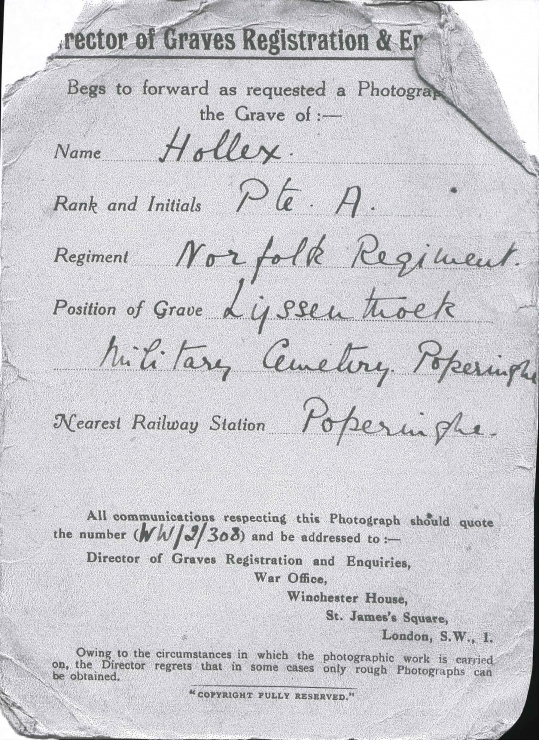 rector of Graves Registration & En
Begs to forward as requested a Photograp
the Grave of :—
Name Hollex.
Rank and Initials Pte. A.
Regiment Norfolk Regiment.
Position of Grave Lijssenthoek
Military Cemetery. Poperinghe
Nearest Railway Station Poperinghe.
All communications respecting this Photograph should quote
the number (WW/2/308) and be addressed to :—
Director of Graves Registration and Enquiries,
War Office,
Winchester House,
St. James's Square,
London, S.W., 1.
Owing to the circumstances in which the photographic work is carried
on, the Director regrets that in some cases only rough Photographs can
be obtained.
"COPYRIGHT FULLY RESERVED."